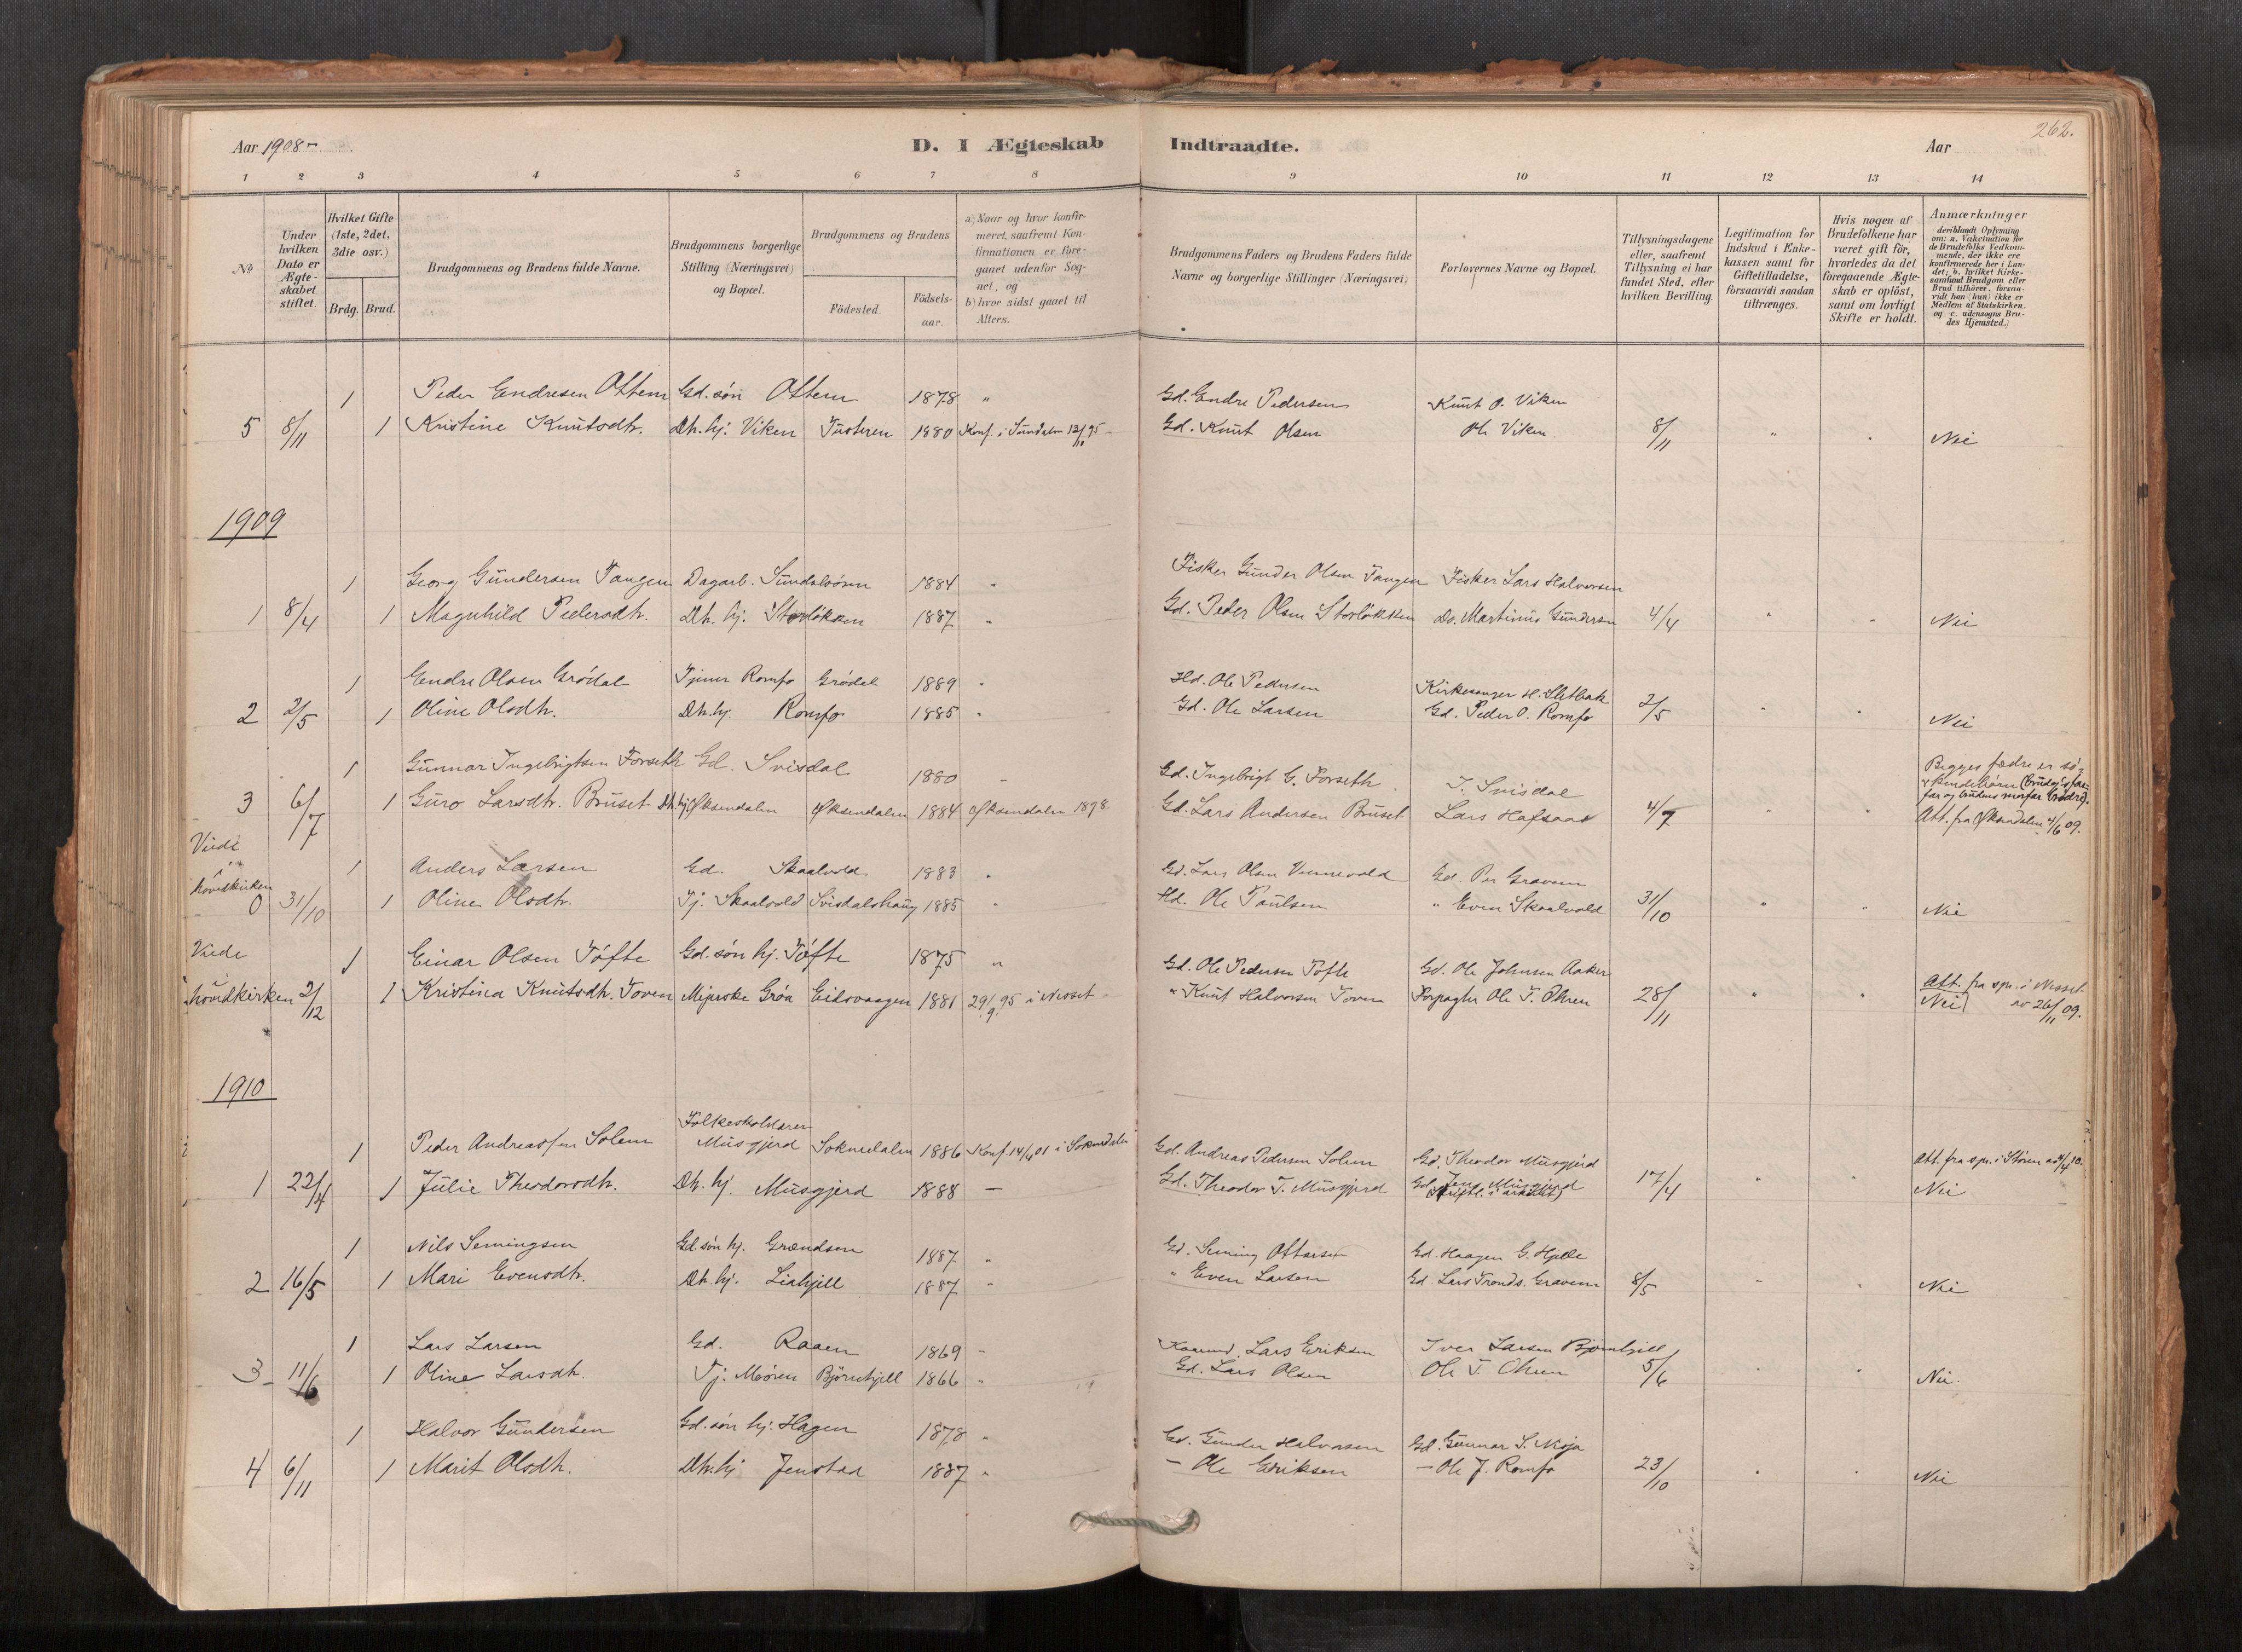 Aar 1908-
D. I Ægteskab Indtraadte.
Aar
262.
1 2 3 4 5 6 7 8 9 10 11 12 13 14
No
Under hvilken Dato er Ægteskabet stiftet.
Hvilket Gifte (1ste, 2det, 3die osv.)
Brdg. Brud.
Brudgommens og Brudens fulde Navne.
Brudgommens borgerlige Stilling (Næringsvei) og Bopæl.
Brudgommens og Brudens
Födested.
Födsels-aar.
a) Naar og hvor konfirmeret, saafremt Konfirmationen er foregaaet udenfor Sognet, og
b) hvor sidst gaaet til Alters.
Brudgommens Faders og Brudens Faders fulde Navne og borgerlige Stillinger (Næringsvei)
Forlovernes Navne og Bopæl.
Tillysningsdagene eller, saafremt Tillysning ei har fundet Sted, efter hvilken Bevilling.
Legitimation for Indskud i Enkekassen samt for Giftetilladelse, forsaavidt saadan tiltrænges.
Hvis nogen af Brudefolkene har været gift för, hvorledes da det foregaaende Ægteskab er oplöst, samt om lovligt Skifte er holdt.
Anmærkninger (deriblandt Oplysning om: a. Vakcination for de Brudefolks Vedkommende, der ikke ere konfirmerede her i Landet; b. hvilket Kirkesamfund Brudgom eller Brud tilhörer, forsaavidt han (hun) ikke er Medlem af Statskirken. og c. udensogns Brudes Hjemsted.)
1 Peder Endresen Ottem Gd. søn Ottem 1878 " Gd. Endre Pedersen Knut O. Viken
5 8/11 1 Kristine Knutsdtr. Dtr. hj. Viken Tusteren 1880 Konf. i Sundalen 13/10 95 Gd. Knut Olsen Ole Viken 8/11 " " Nei
1909
1 Georg Gundersen Tangen Dagarb. Sundalsøren 1884 " Fisker Gunder Olsen Tangen Fisker Lars Halvorsen
1 8/4 1 Magnhild Pedersdtr. Dtr. hj. Storløkken 1887 " Gd. Peder Olsen Storløkken Do. Martinus Gundersen 4/4 " " Nei
1 Endre Olsen Grødal Tjener Romfo Grødal 1889 " Hd. Ole Pedersen Kirkesanger H. Sletbak
2 2/5 1 Oline Olsdtr. Dtr. hj. Romfo 1885 " Gd. Ole Larsen Gd. Peder O. Romfo 2/5 " " Nei
1 Gunnar Ingebrigtsen Forseth Gd. Svisdal 1880 " Gd. Ingebrigt G. Forseth T. Svisdal Begges fædre er sø-
3 6/7 1 Guro Larsdtr. Bruset Dtr. hj. Øksendalen Øksendalen 1884 Øksendalen 1898 Gd. Lars Andersen Bruset Lars Hafsaas 4/7 " " skendebørn (brudg.s farfar og brudens morfar brødre).
Att. fra Øksendalen 4/6 09.
Viede i hovedkirken
1 Anders Larsen Gd. Skaalvold 1883 " Gd. Lars Olsen Vennevold Gd. Per Gravem
0 31/10 1 Oline Olsdtr. Tj. Skaalvold Svisdalshaug 1885 " Hd. Ole Paulsen " Even Skaalvold 31/10 " " Nei
Viede i hovedkirken
1 Einar Olsen Tøfte Gd. søn hj. Tøfte 1875 " Gd. Ole Pedersen Tøfte Gd. Ole Johnsen Aaker
2/12 1 Kristina Knutsdtr. Toven Mejerske Grøa Eidsvaagen 1881 29/9 95 i Nesset " Knut Halvorsen Toven Forpagter Ole T. Ohren 28/11 " " Att. fra spr. i Nesset av 26/11 09.
Nei
1910
1 Peder Andreassen Solem Folkeskolelærer Musgjerd Soknedalen 1886 Konf. 14/4 01 i Soknedalen Gd. Andreas Pedersen Solem Gd. Theodor Musgjerd Att. fra spr. i Støren av 4/4 10.
1 22/4 1 Julie Theodorsdtr. Dtr. hj. Musgjerd 1888 — Gd. Theodor T. Musgjerd Gd. Jens Musgjerd (skriftl. i arkivet) 17/4 " " Nei
1 Nils Semingsen Gd. søn hj. Grændsen 1887 " Gd. Seming Ottersen Gd. Haagen G. Hjelle
2 16/5 1 Mari Evensdtr. Dtr. hj. Liahjell 1887 " " Even Larsen Gd. Lars Tronds. Gravem 8/5 " " Nei
1 Lars Larsen Gd. Raaen 1869 " Lars Eriksen Iver Larsen Bjørnhjell
3 11/6 1 Oline Larsdtr. Tj. Møren Bjørnhjell 1866 " Gd. Lars Olsen Ole T. Ohren 5/6 " " Nei
1 Halvor Gundersen Gd. søn hj. Hagen 1878 " Gd. Gunder Halvorsen Gd. Gunnar S. Nisja
4 6/11 1 Marit Olsdtr. Dtr. hj Jenstad 1887 " — Ole Eriksen — Ole J. Romfo 23/10 " " Nei